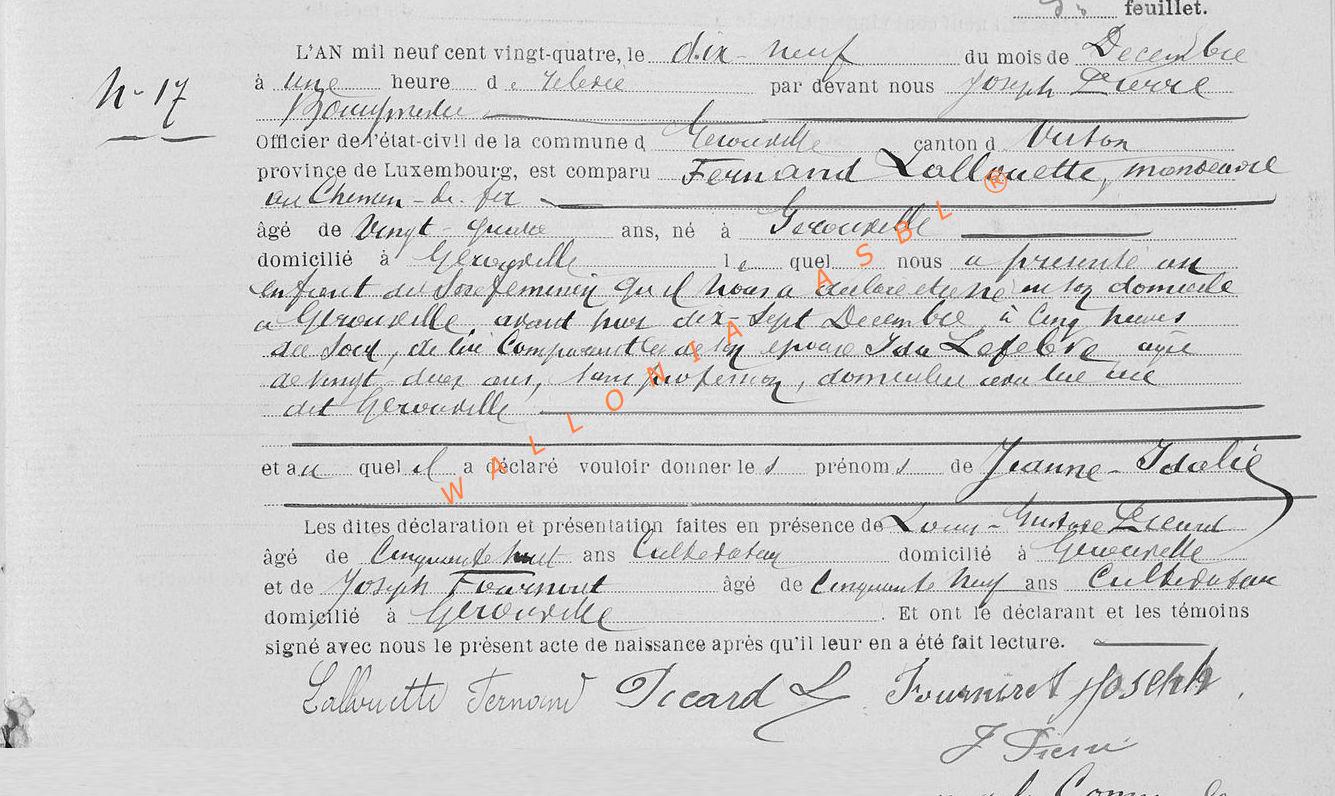 feuillet.
L'AN mil neuf cent vingt-quatre, le dix-neuf du mois de Decembre
N-17
à une heure d par devant nous Joseph Pierre
Bourgmestre
Officier de l'état-civil de la commune d Gérouville canton d Virton
province de Luxembourg, est comparu Fernand Lallouette, manoeuvre
au Chemin-de-fer
âgé de Vingt-quatre ans, né à Gerouville
domicilié à Gérouville le quel nous a présenté un
enfant du Sexe féminin qu'il nous a déclaré être né en son domicile
à Gérouville, avant hier dix-sept Decembre, à Cinq heures
du Soir, de lui Comparant et de son épouse Ida Lefebvre agée
de vingt deux ans, sans profession, domiciliée avec lui au
dit Gérouville
et au quel il a déclaré vouloir donner le s prénom s de Jeanne-Idalie
Les dites déclaration et présentation faites en présence de Louis-Gustave Picard
âgé de Cinquante huit ans Cultivateur domicilié à Gérouville
et de Joseph Fourniret âgé de Cinquante Neuf ans Cultivateur
domicilié à Gérouville. Et ont le déclarant et les témoins
signé avec nous le présent acte de naissance après qu'il leur en a été fait lecture.
Lallouette Fernand Picard L Fourniret Joseph
J Pierre
WALLONIA ASBL ®